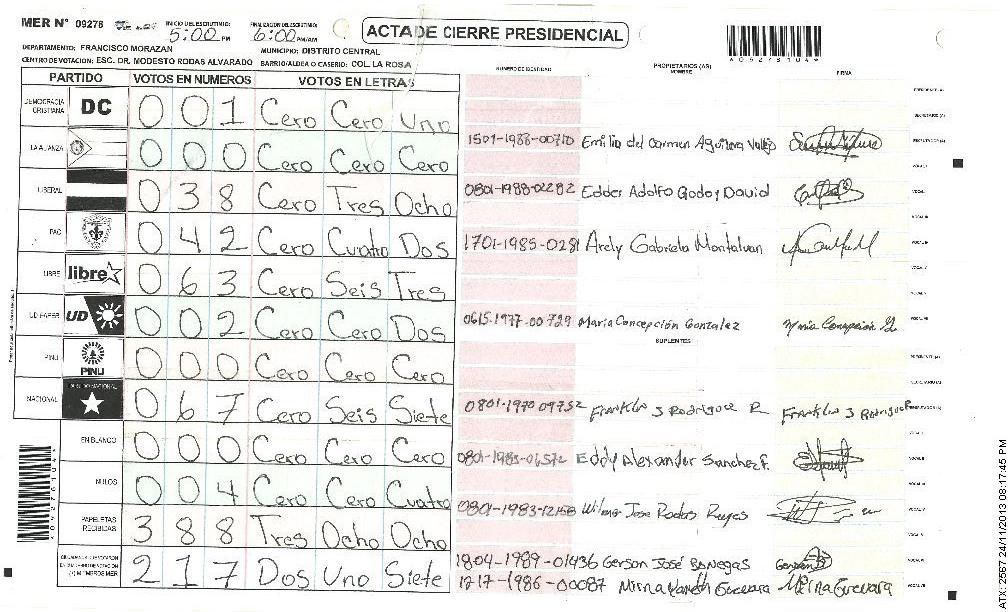 MER N° 09278 INICIO DEL ESCRUTINIO: 5:00 PM FINALIZACION DEL ESCRUTINIO: 6:00 PM/AM ACTA DE CIERRE PRESIDENCIAL
DEPARTAMENTO: FRANCISCO MORAZAN MUNICIPIO: DISTRITO CENTRAL
CENTRO DE VOTACION: ESC. DR. MODESTO RODAS ALVARADO BARRIO/ALDEA O CASERIO: COL. LA ROSA
PARTIDO VOTOS EN NUMEROS VOTOS EN LETRAS
DEMOCRACIA CRISTIANA DC 0 0 1 Cero Cero Uno
LA ALIANZA 0 0 0 Cero Cero Cero
LIBERAL 0 3 8 Cero Tres Ocho
PAC 0 4 2 Cero Cuatro Dos
LIBRE libre 0 6 3 Cero Seis Tres
UD FAPER UD 0 0 2 Cero Cero Dos
PINU PINU 0 0 0 Cero Cero Cero
NACIONAL 0 6 7 Cero Seis Siete
EN BLANCO 0 0 0 Cero Cero Cero
NULOS 0 0 4 Cero Cero Cuatro
PAPELETAS RECIBIDAS 3 8 8 Tres Ocho Ocho
2 1 7 Dos Uno Siete
NUMERO DE IDENTIDAD PROPIETARIOS (AS) NOMBRE FIRMA
1501-1988-00710 Emilia del Carmen Aguilera
0801-1988-02282 Edder Adolfo Godoy David
1701-1985-0281 Arely Gabriela Montalvan
0615-1977-00729 Maria Concepción Gonzalez Maria Concepción
SUPLENTES
0801-1970 09752 Franklin J Rodriguez R Franklin J Rodriguez R
Eddy Alexander Sanchez F.
0801-1983-12158 Wilmer Jose Rodas Reyes
1804-1989-01436 Gerson José Banegas Gerson B
1217-1986-00087 Mirna Yaneth Guevara Mirna Guevara
ATX 2567 24/11/2013 08:17:45 PM